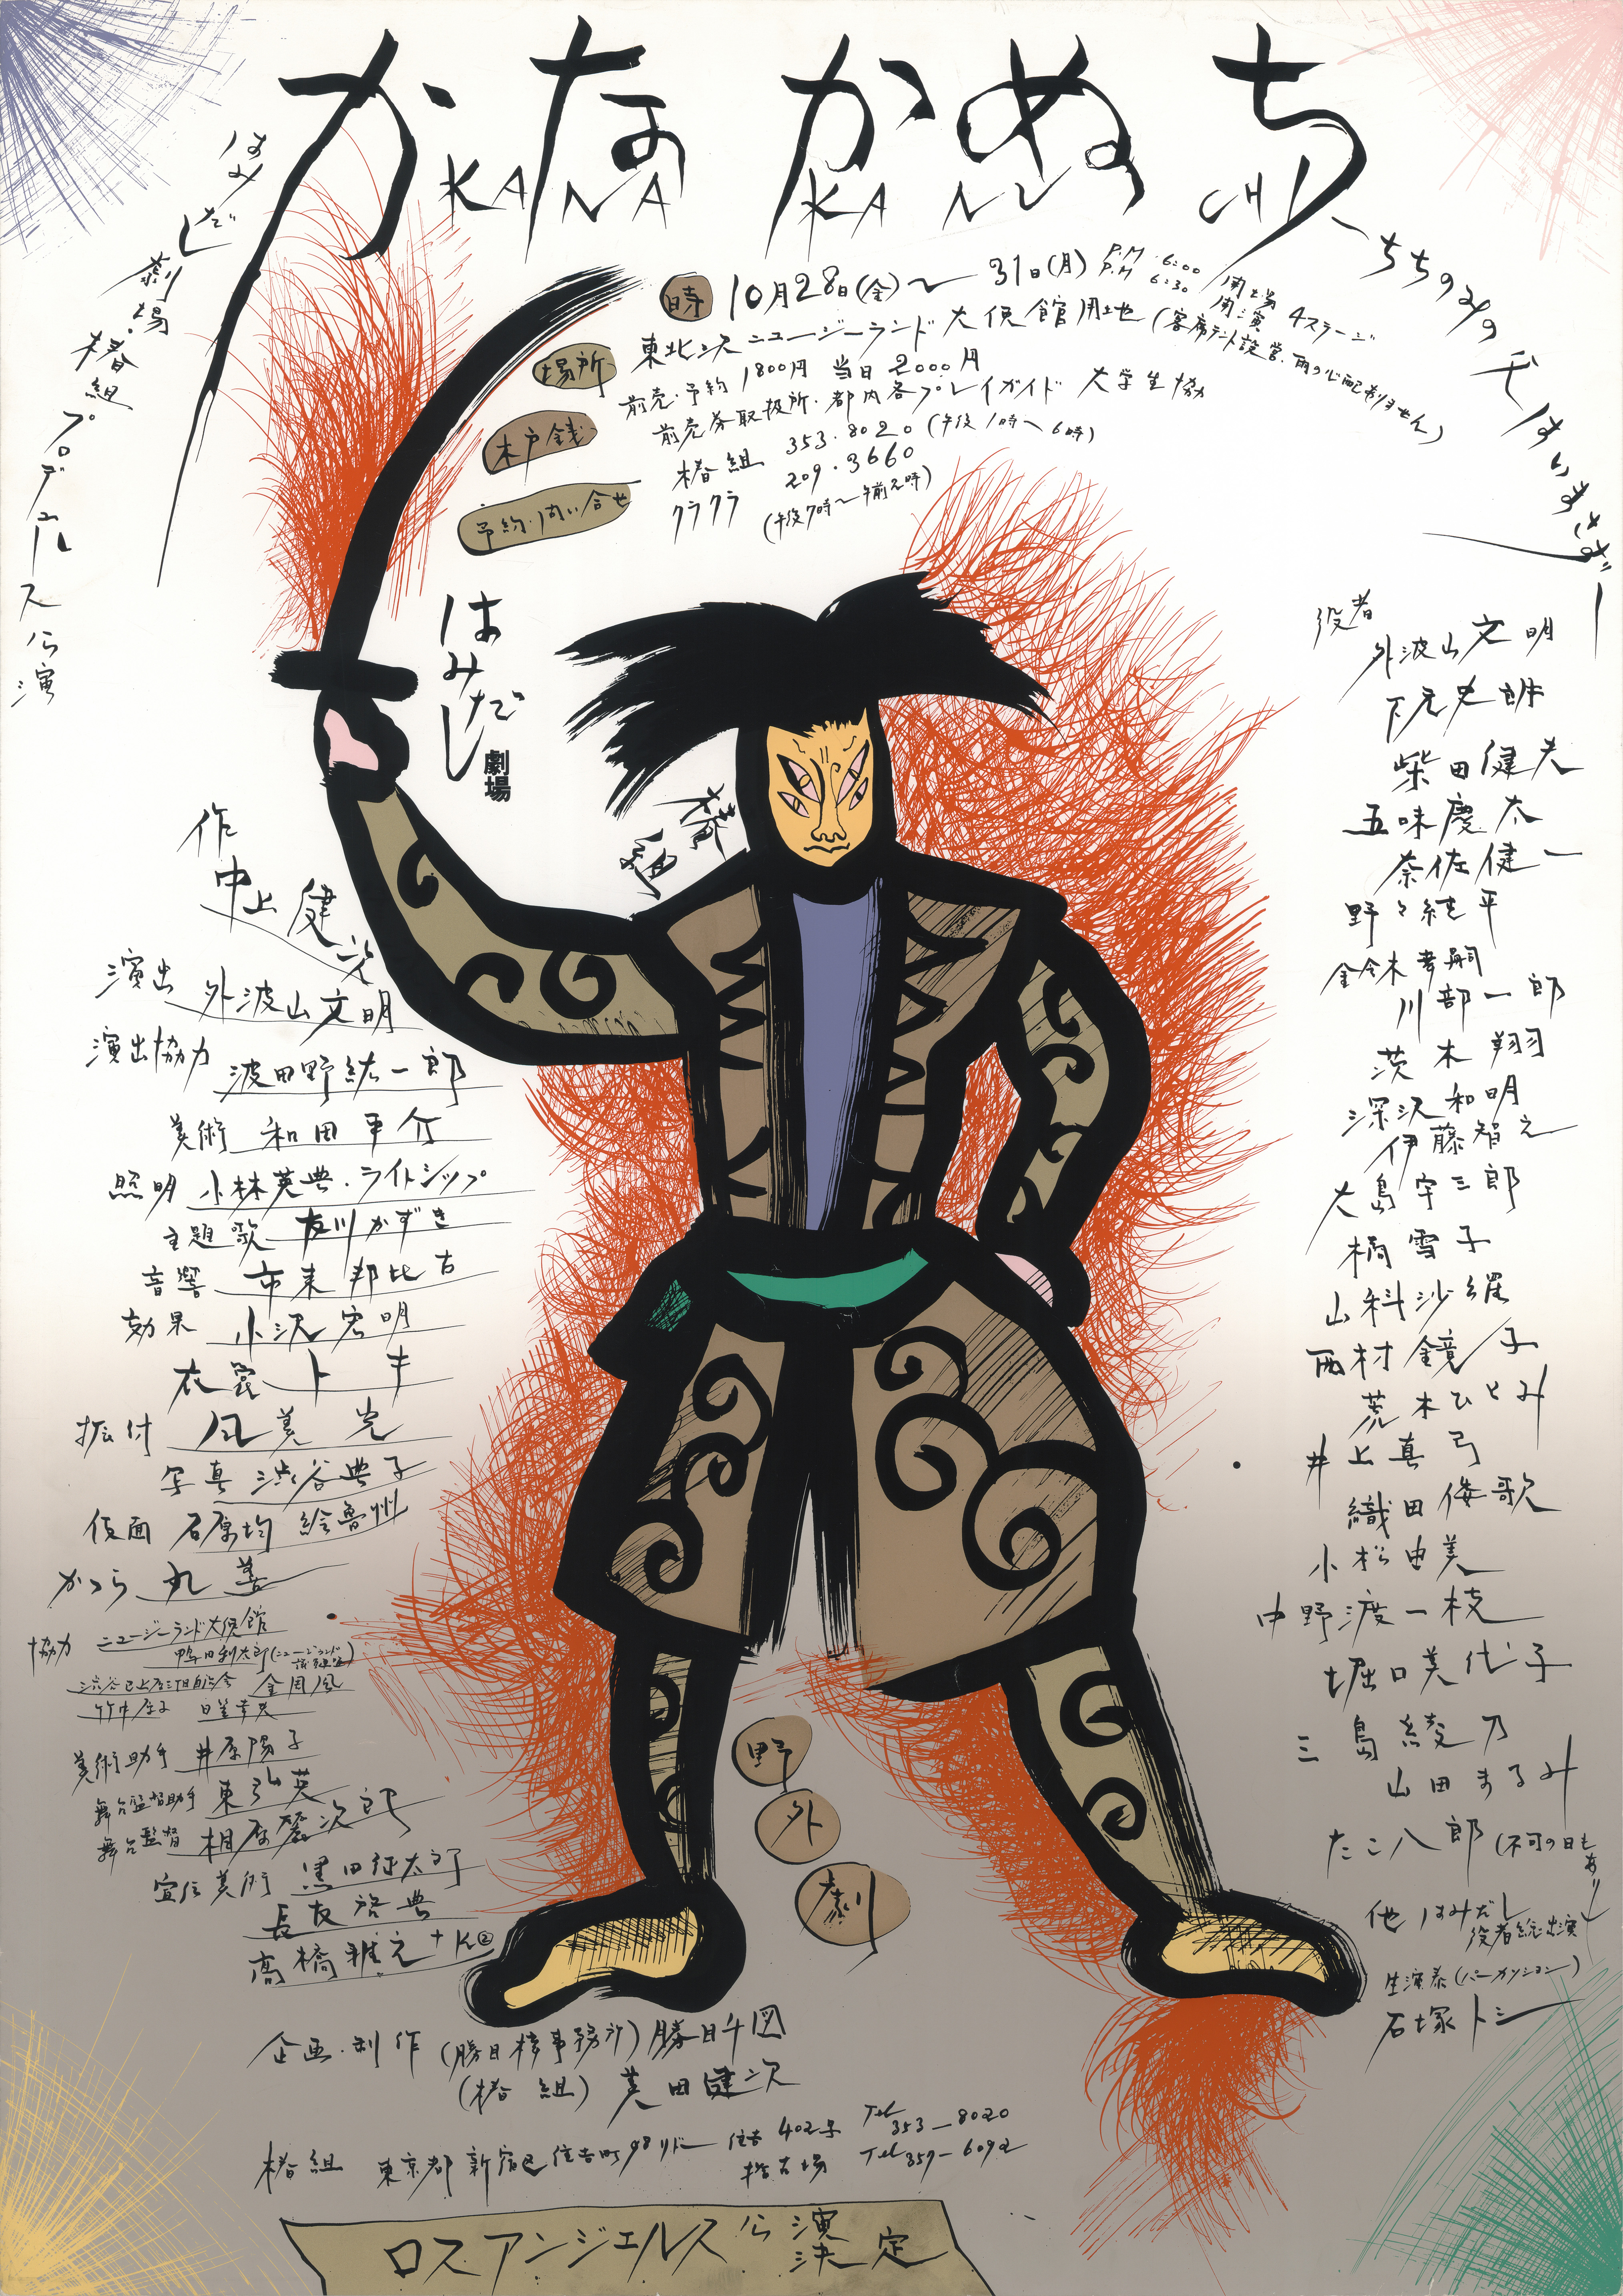 かなかぬち
KANA KANUCHI
ちちのみの父はいまさず
はみだし劇場・椿組プロデュース公演
時 10月28日(金)〜31日(月) P.M 6:00 開場 P.M 6:30 開演 4ステージ
場所 東北沢ニュージーランド大使館用地(客席テント設営・雨の心配ありません)
木戸銭 前売・予約 1800円 当日 2000円
前売券取扱所・都内各プレイガイド 大学生協
予約・問い合せ 椿組 353・8020(午後1時〜6時)
クラクラ 209・3660
(午後7時〜午前2時)
はみだし劇場
椿組
作 中上健次
演出 外波山文明
演出協力 波田野紘一郎
美術 和田平介
照明 小林英典・ライトシップ
主題歌 友川かずき
音響 市来邦比古
効果 小沢宏明
衣裳 トキ
振付 風美光
写真 渋谷典子
仮面 石原均 絵魯州
かつら 丸善
協力 ニュージーランド大使館
美術助手 井原陽子
舞台監督助手 東弘英
舞台監督 相原麗次郎
宣伝美術 黒田征太郎
長友啓典
高橋雅之+K②
役者
外波山文明
下元史朗
柴田健夫
五味慶太
奈佐健一
野々純平
鈴木孝嗣
川部一郎
茨木翔
深沢和明
伊藤智之
大島宇三郎
橘雪子
山科沙羅
西村鏡子
荒木ひとみ
井上真弓
織田倭歌
小松由美
中野渡一枝
堀口美代子
三島綾乃
山田まるみ
たこ八郎(不可の日もあり)
他 はみだし役者総出演
生演奏(パーカッション)
石塚トシ
野外劇
企画・制作(勝目椿事務所)勝目千図
(椿組)英田健次
椿組 東京都新宿区住吉町98
住吉402号 Tel 353-8020
稽古場 Tel 359-6092
ロスアンジェルス公演決定